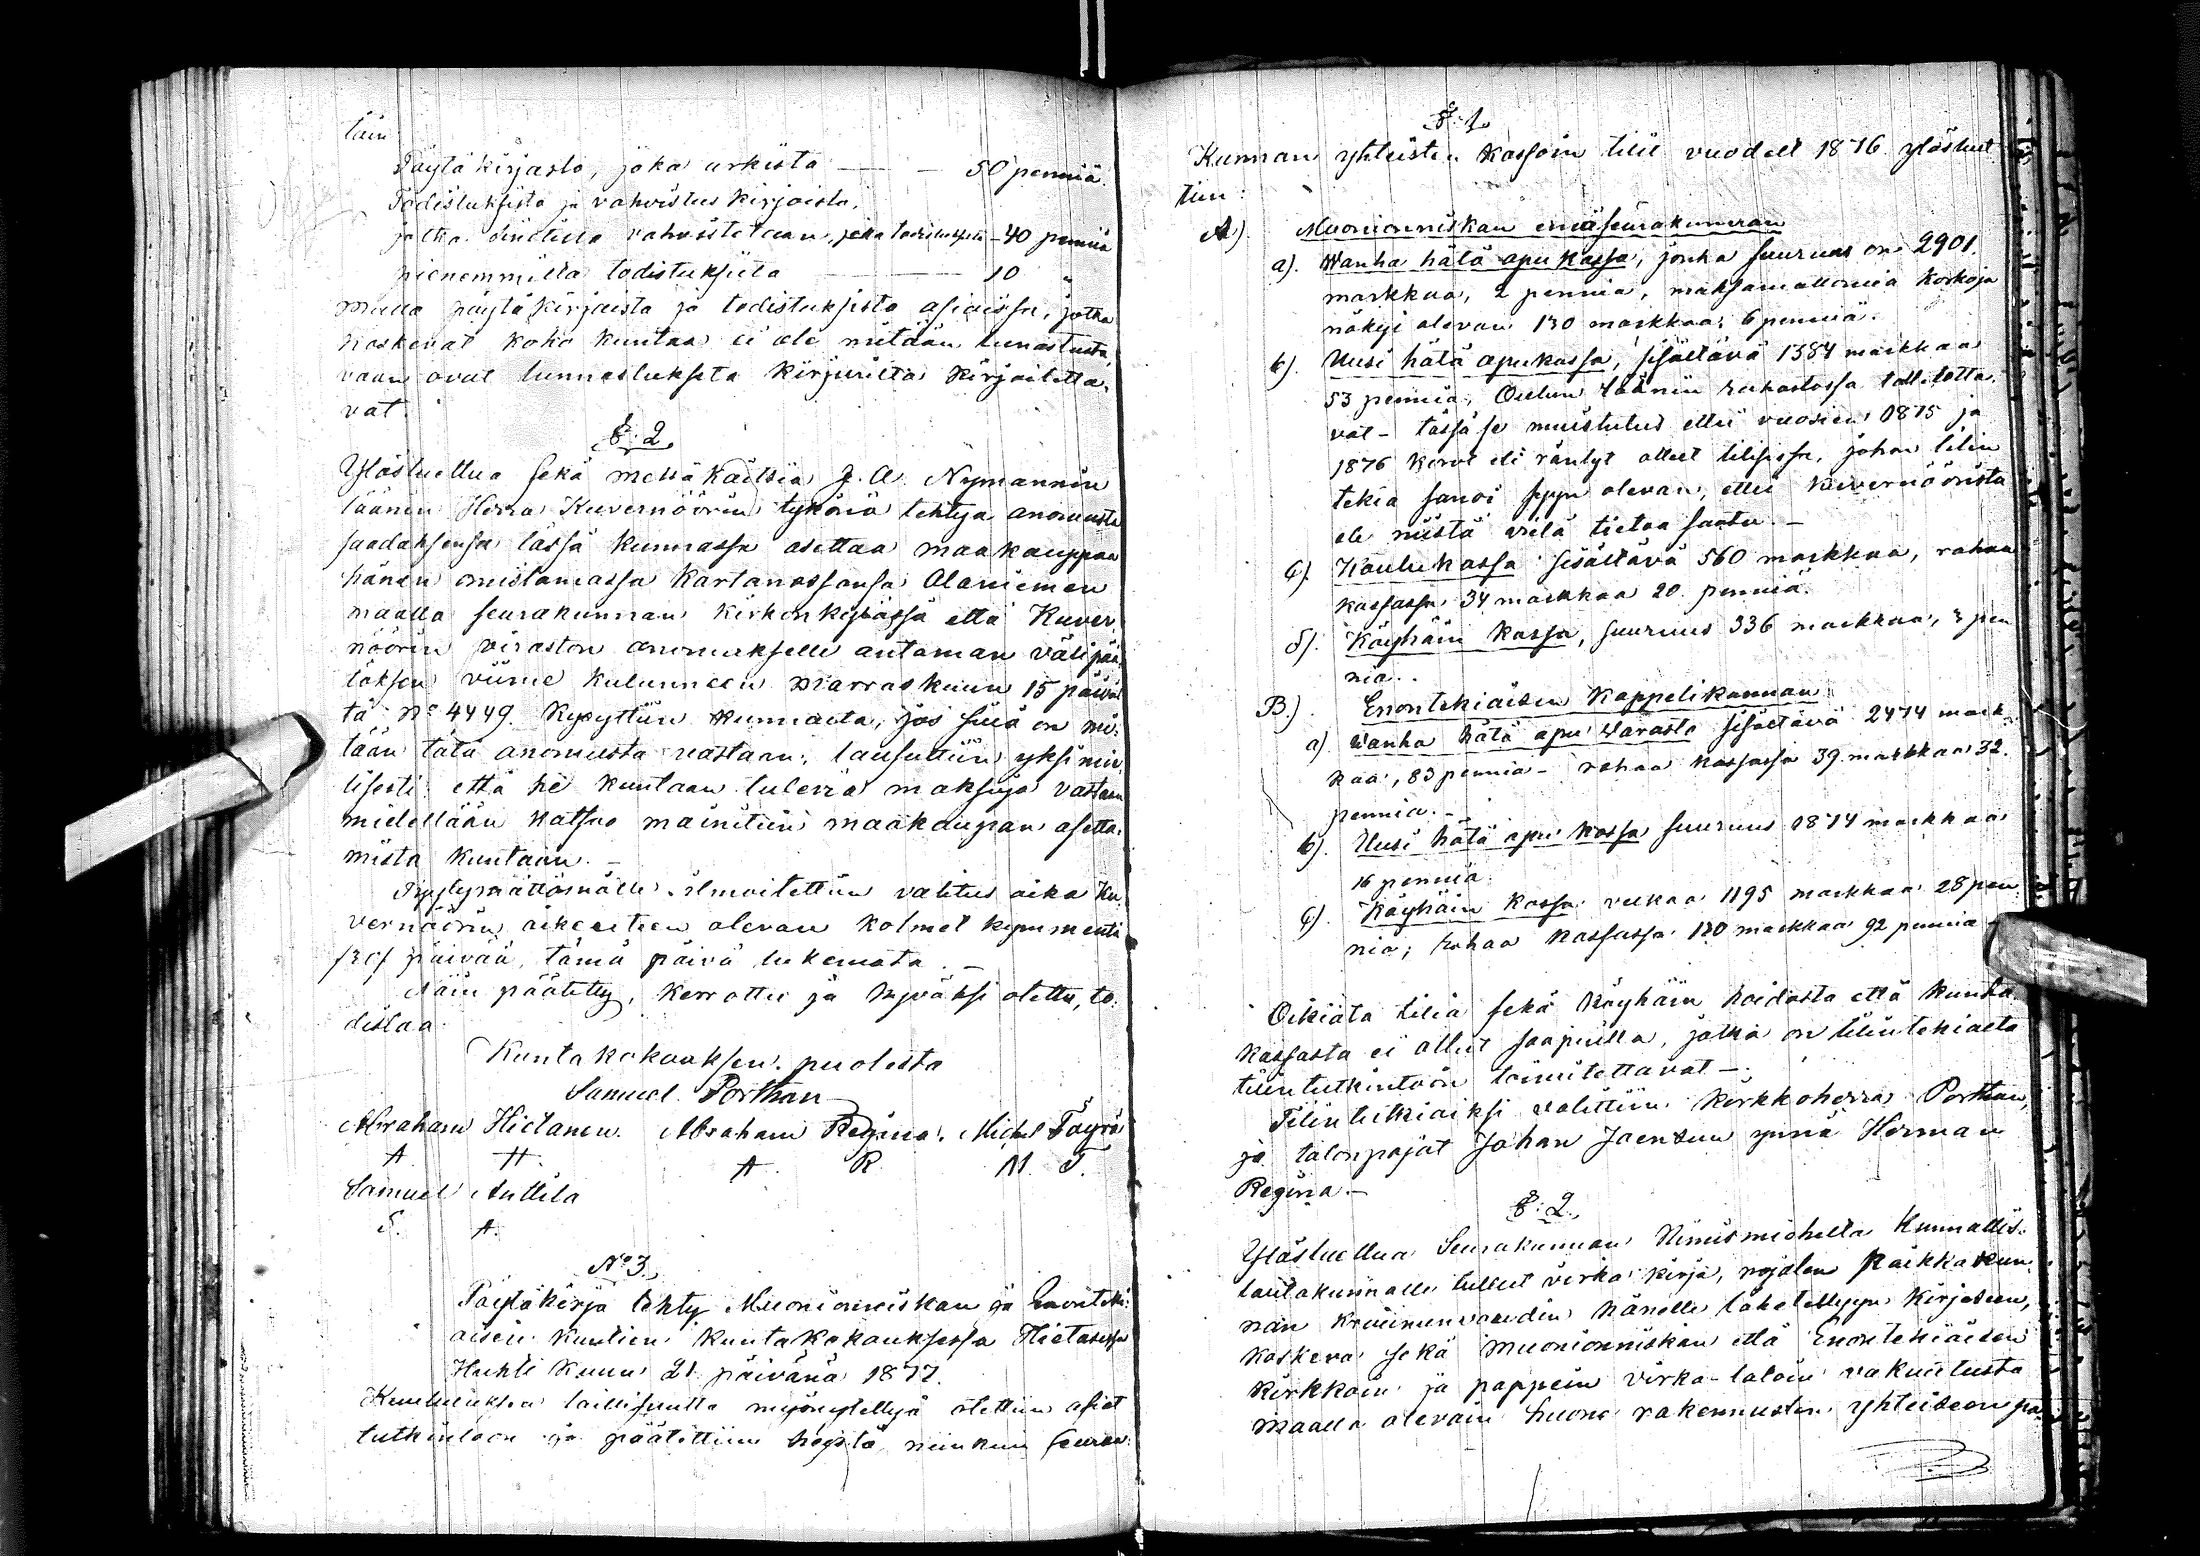 täin
Pöytäkirjasta, joka arkista — — 50 penniä.
Todistuksista ja vahvistus kirjoista,
jotka sinetillä vahvistetaan, joka todistukselta - 40 penniä
pienemmiltä todistuksilta — 10 "
Muilla pöytäkirjoista ja todistuksista asioissa, jotka
koskevat koko kuntaa ei ole mitään lunastusta,
vaan ovat lunnastuksetta kirjurilta kirjoitetta-
vat.
§: 2.
Ylösluettua sekä mettäkäitsiä J. A. Nymannin
läänin Herra Kuvernöörin tykönä tehtyä anomusta
saadaksensa tässä kunnassa asettaa maakauppaa
hänen omistamassa Kartanossansa Alaniemen
maalla seurakunnan kirkonkylässä että Kuver-
nöörin viraston anomukselle antaman välipää-
töksen viime kuluneen Marraskuun 15 päiväl-
tä No 4449. kysyttiin kunnalta, jos sillä on mi-
tään tätä anomusta vastaan, lausuttiin yksimie-
lisesti että he kuntaan tulevia maksuja vastaan
mielellään katsoo mainitun maakaupan asetta-
mista kuntaan. —
Tyytymättömälle ilmoitettiin valitus aika Ku-
vernöörin oikeuteen olevan kolmet kymmentä
/30/ päivää, tämä päivä lukemata. —
Näin päätetty, kerrottu ja hyväksi otettu, to-
distaa.
Kuntakokouksen puolesta
Samuel Porthan
Abraham Hietanen. Abraham Regina. Michel Täyrä
A H. A. R. M. T.
Samuel Anttila
S. A.
No 3.
Pöytäkirja tehty Muonionniskan ja Enonteki-
äisen kuntien kuntakokouksessa Hietasessa
Huhti kuun 21 päivänä 1877.
Kuulutuksen laillisuutta myönnyteltyä otettiin asiat
tutkintoon ja päätettiin hegistä niinkuin seuraa:
§: 1.
Kunnan yhteisten kassoin tilit vuodelt 1876 ylösluet-
tiin:
A). Muonionniskan emäseurakunnan
a). Wanha hätä apu kassa, jonka suuruus on 2901.
markkaa, 2 penniä, maksamattomia korkoja
näkyi olevan 130 markkaa, 6 penniä.
b). Uusi hätä apukassa, sisältävä 1384 markkaa
53 penniä, Oulun läänin rahastossa talletetta-
vat - tässä se muistutus ettei vuosien 1875 ja
1876 korot eli räntyt olleet tilissä, johon tilin
tekiä sanoi syyn olevan, ettei kuvernööristä
ole niistä vielä tietoa saatu. —
c). Koulukassa sisältävä 560 markkaa, rahaa
kassassa 34 markkaa 20 penniä.
d). Käyhäin kassa, suuruus 336 markkaa, 3 pen-
niä.
B.). Enontekiäisen Kappelikunnan
a) Wanha hätä apu Varasto sisältävä 2474 mark-
kaa, 83 penniä - rahaa kassassa 39 markkaa 32.
penniä. —
b). Uusi hätä apu kassa suuruus 1874 markkaa
16 penniä.
c). Käyhäin kassa velkaa 1195 markkaa 28 pen-
niä; rahaa kassassa 120 markkaa 92 penniä
Oikiata tiliä sekä käyhäin hoidosta että kunta-
kassasta ei ollut saapuilla, jotka on tilintekiäiltä
tilintutkintoon toimitettavat —
Tilintutkiaiksi valittiin kirkkoherra Porthan,
ja talonpojat Johan Jaensuu ynnä Herman
Regina. —
§: 2.
Ylösluettua Seurakunnan Nimismieheltä Kunnallis-
lautakunnalle tullut virka kirja, nojalen paikkakun-
nan kruununvoudin hänelle lähetettyyn kirjeeseen,
koskeva sekä Muonionniskan että Enontekiäisen
kirkkoin ja pappein virka-taloin vakuutusta
maalla olevain huone rakennusten yhteiseen pa-